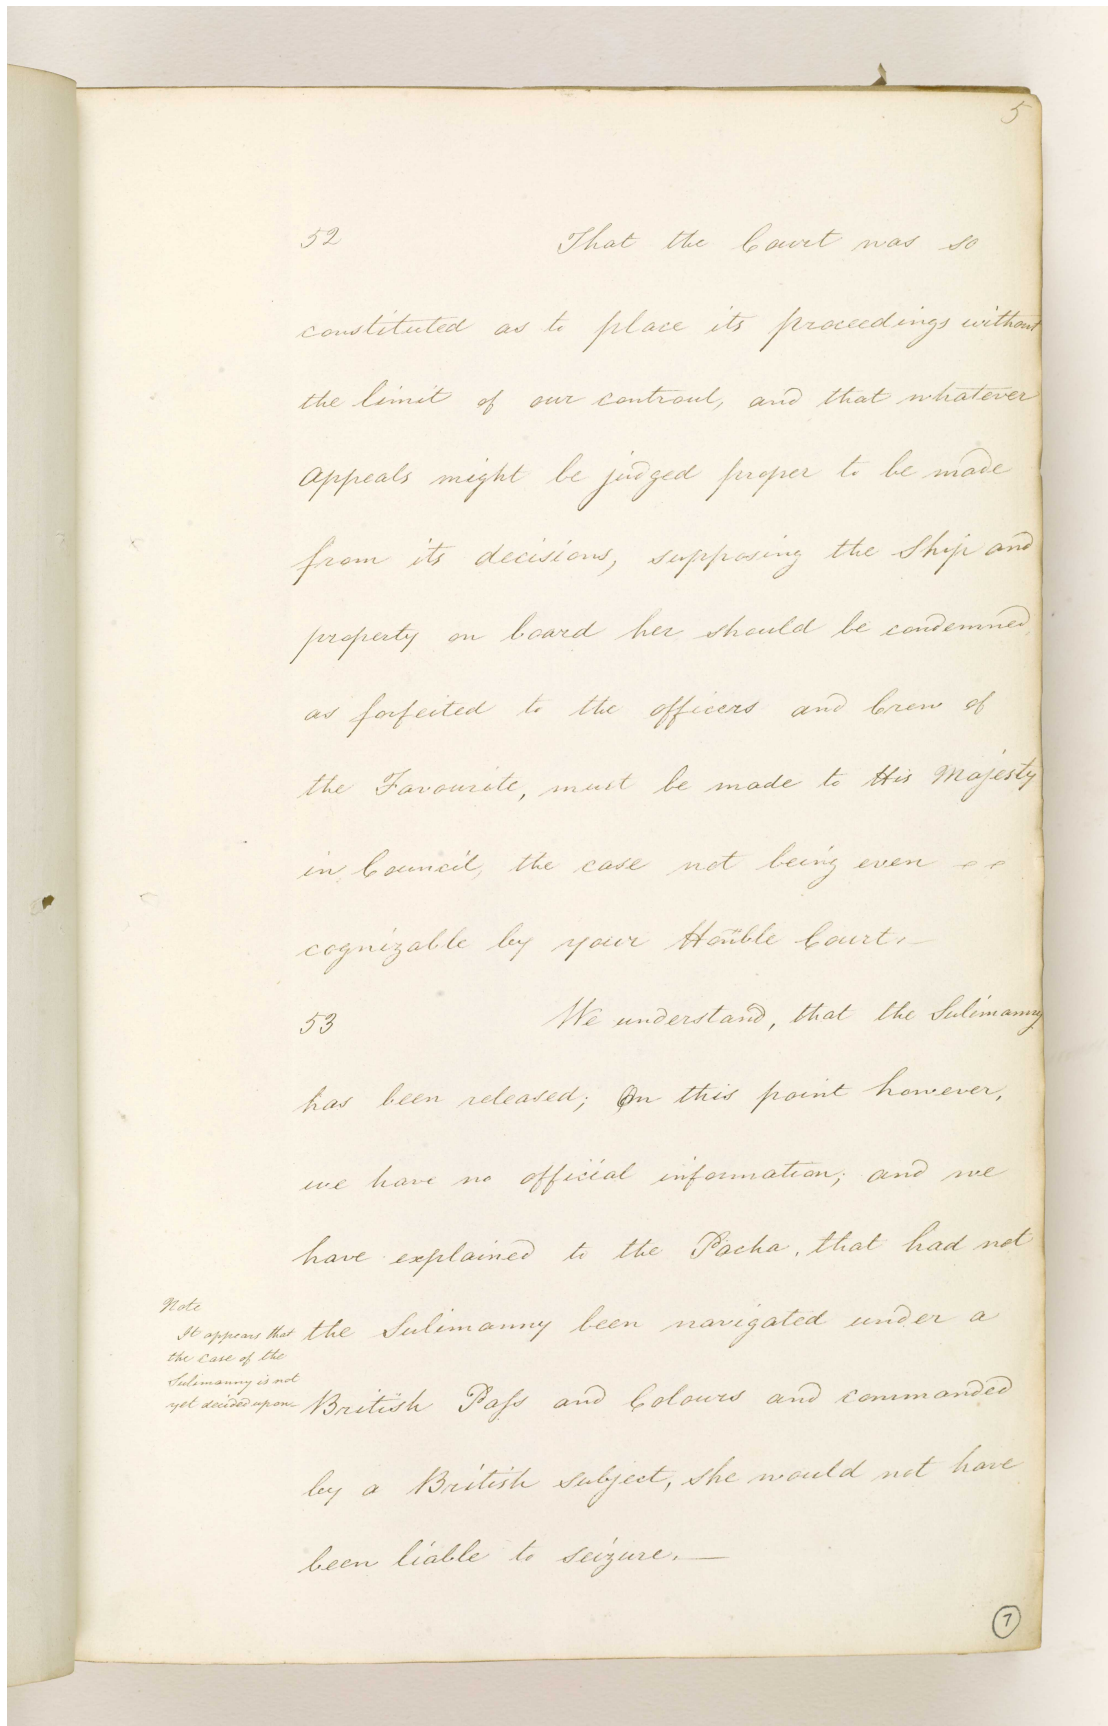 5
52 That the Court was so
constituted as to place its proceedings without
the limit of our controul, and that whatever
Appeals might be judged proper to be made
from its decisions, supposing the Ship and
property on board her should be condemned
as forfeited to the officers and Crew of
the Favourite, must be made to His Majesty
in Council, the case not being even
cognizable by your Honble Court. —
53 We understand, that the Sulimanny
has been released; On this point however,
we have no official information; and we
have explained to the Pacha, that had not
Note
It appears that
the case of the
Sulimanny is not
yet decided upon
the Sulimanny been navigated under a
British Pass and Colours and commanded
by a British subject, she would not have
been liable to seizure. —
7